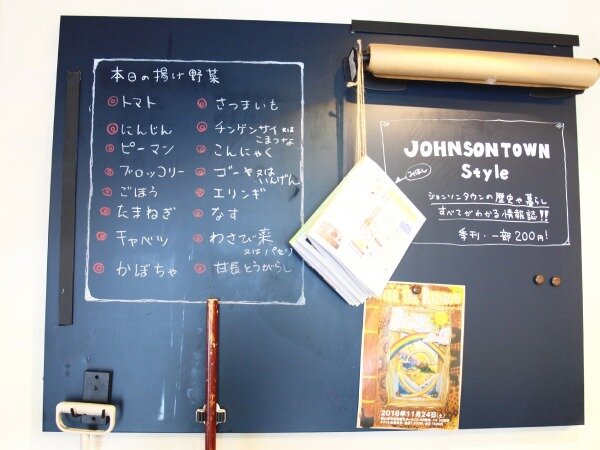 本日の揚げ野菜
トマト
にんじん
ピーマン
ブロッコリー
ごぼう
たまねぎ
キャベツ
かぼちゃ
さつまいも
チンゲンサイ又は
こまつな
こんにゃく
ゴーヤ又は
いんげん
エリンギ
なす
わさび菜
又はパセリ
甘長とうがらし
JOHNSON TOWN
Style
ジョンソンタウンの歴史や暮らし
すべてがわかる情報誌!!
季刊・一部200円!
みほん
2018年11月24日